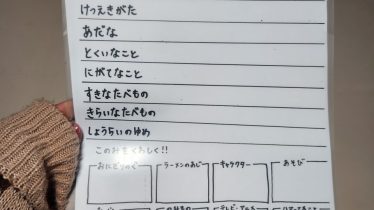 けつえきがた
あだな
とくいなこと
にがてなこと
すきなたべもの
きらいなたべもの
しょうらいのゆめ
このおきておしく!!
おにぎりのぐ ラーメンのあじ キャラクター あそび